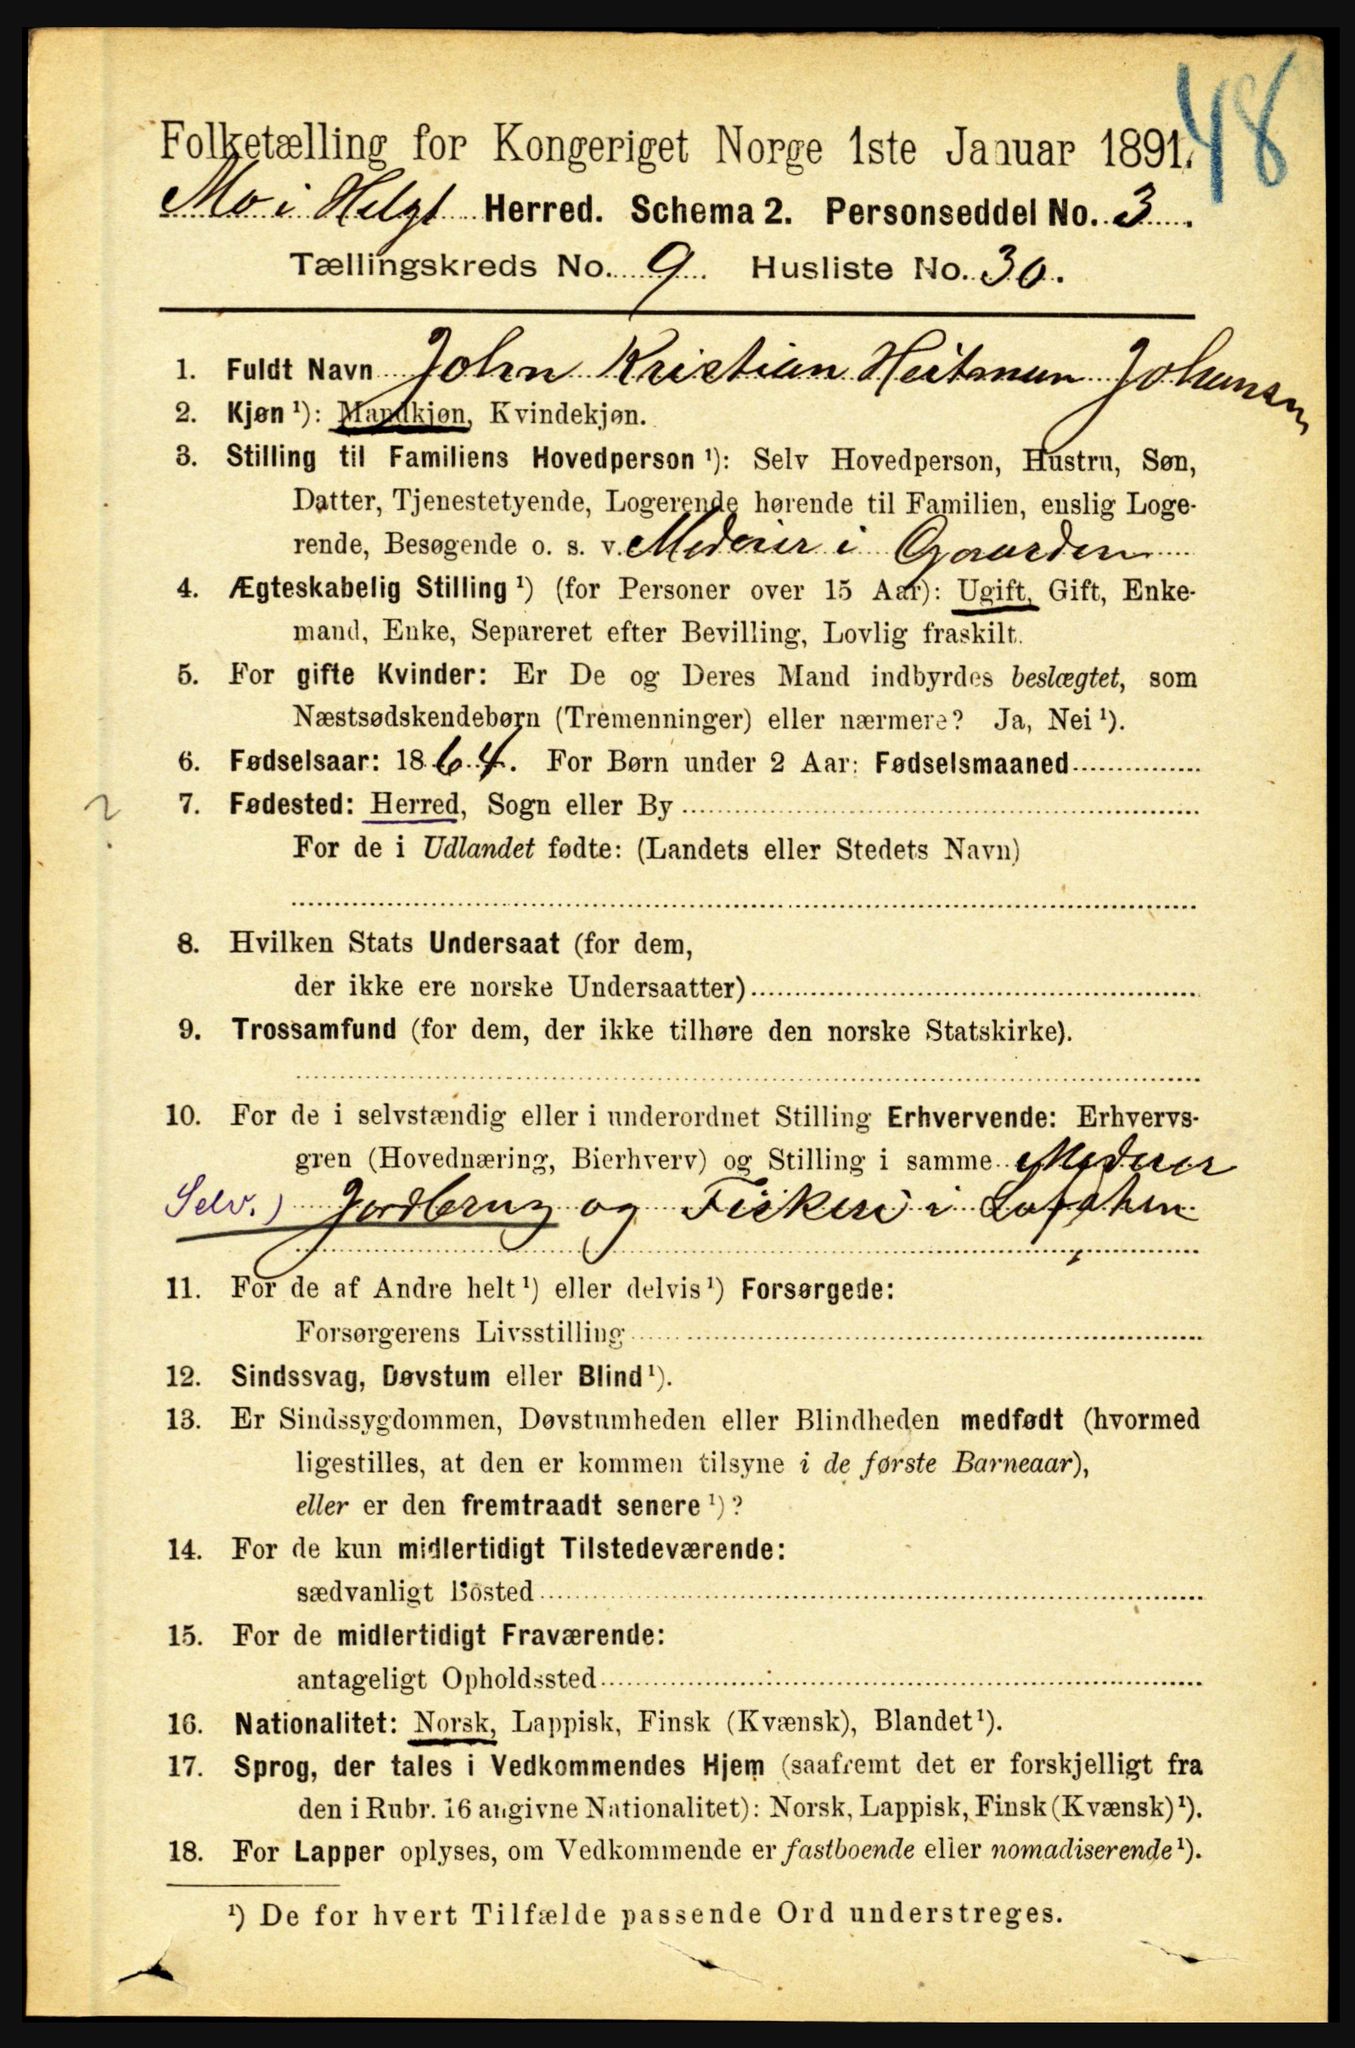 48
Folketælling for Kongeriget Norge 1ste Januar 1891.
Mo i Helgl Herred. Schema 2. Personseddel No. 3.
Tællingskreds No. 9. Husliste No. 30.
1. Fuldt Navn John Kristian Heitman Johansen
2. Kjøn ¹): Mandkjøn, Kvindekjøn.
3. Stilling til Familiens Hovedperson ¹): Selv Hovedperson, Hustru, Søn,
Datter, Tjenestetyende, Logerende hørende til Familien, enslig Loge-
rende, Besøgende o. s. v. Medeier i Gaarden
4. Ægteskabelig Stilling ¹) (for Personer over 15 Aar): Ugift, Gift, Enke-
mand, Enke, Separeret efter Bevilling, Lovlig fraskilt.
5. For gifte Kvinder: Er De og Deres Mand indbyrdes beslægtet, som
Næstsødskendebørn (Tremenninger) eller nærmere? Ja, Nei ¹).
6. Fødselsaar: 1864. For Børn under 2 Aar: Fødselsmaaned
? 7. Fødested: Herred, Sogn eller By
For de i Udlandet fødte: (Landets eller Stedets Navn)
8. Hvilken Stats Undersaat (for dem,
der ikke ere norske Undersaatter)
9. Trossamfund (for dem, der ikke tilhøre den norske Statskirke).
10. For de i selvstændig eller i underordnet Stilling Erhvervende: Erhvervs-
gren (Hovednæring, Bierhverv) og Stilling i samme Medeier
Selv.) Jordbrug og Fiskeri i Lofoten
11. For de af Andre helt ¹) eller delvis ¹) Forsørgede:
Forsørgerens Livsstilling
12. Sindssvag, Døvstum eller Blind ¹).
13. Er Sindssygdommen, Døvstumheden eller Blindheden medfødt (hvormed
ligestilles, at den er kommen tilsyne i de første Barneaar),
eller er den fremtraadt senere ¹)?
14. For de kun midlertidigt Tilstedeværende:
sædvanligt Bosted
15. For de midlertidigt Fraværende:
antageligt Opholdssted
16. Nationalitet: Norsk, Lappisk, Finsk (Kvænsk), Blandet ¹).
17. Sprog, der tales i Vedkommendes Hjem (saafremt det er forskjelligt fra
den i Rubr. 16 angivne Nationalitet): Norsk, Lappisk, Finsk (Kvænsk) ¹).
18. For Lapper oplyses, om Vedkommende er fastboende eller nomadiserende ¹).
¹) De for hvert Tilfælde passende Ord understreges.